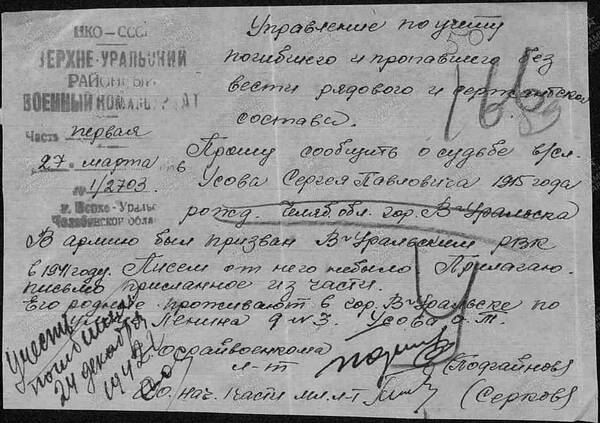 НКО-СССР
ВЕРХНЕ-УРАЛЬСКИЙ
РАЙОННЫЙ
ВОЕННЫЙ КОМИССАРИАТ
Часть первая
27 марта
№ 1/2703
г. Верхне-Уральск
Челябинской области
Управление по учёту
погибшего и пропавшего без
вести рядового и сержантского
состава.
Прошу сообщить о судьбе в/сл.
Усова Сергея Павловича 1915 года
рожд. Челяб. обл. гор. В-Уральска
В армию был призван В-Уральским РВК
в 1941 году. Писем от него небыло. Прилагаю
письмо присланное из части.
Его родные проживают в гор. В-Уральске по
Ленина д №3. Усова
райвоенкома
л-т (Подгайнов)
нач. 1 части мл. л-т (Серков)
Учесть
погибшим
24 декабря
1942